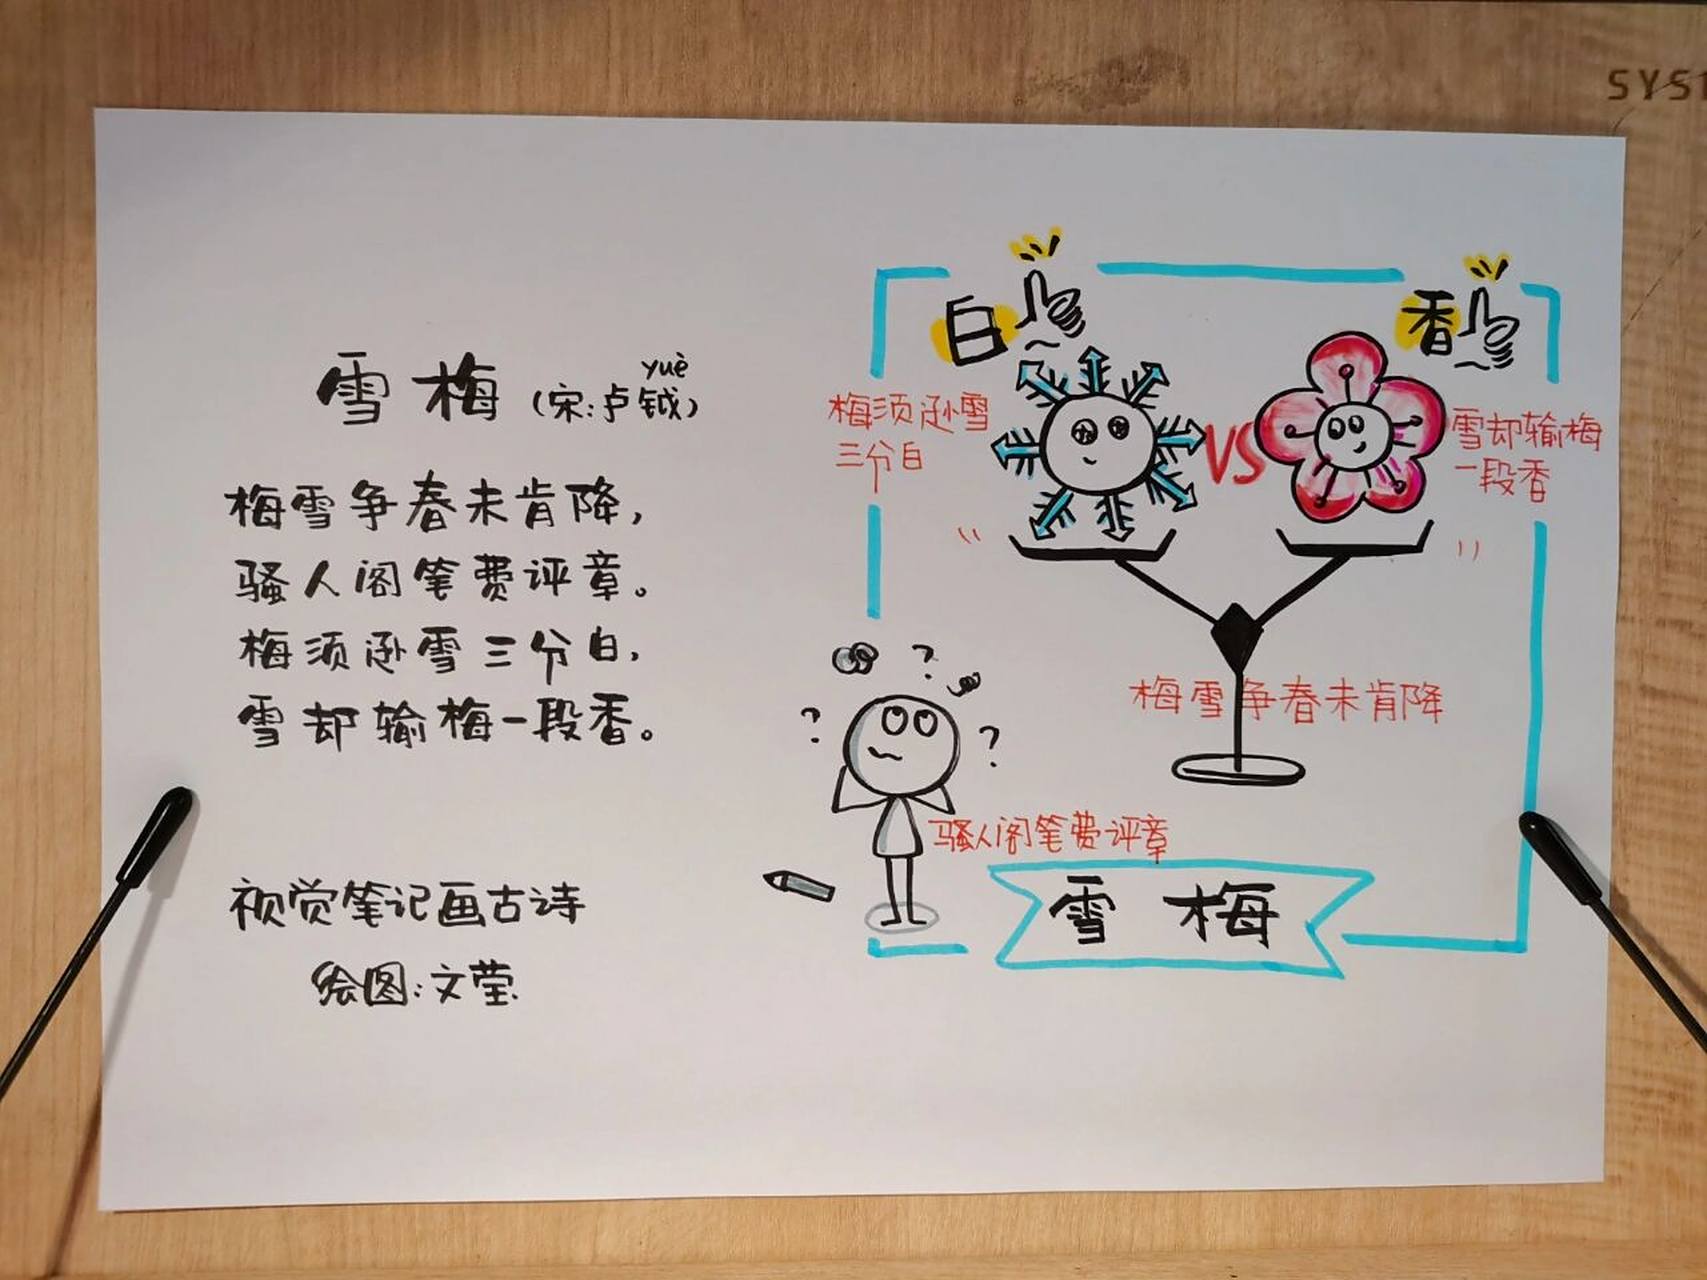 SYS
雪梅（宋：卢钺）
yuè
梅雪争春未肯降，
骚人阁笔费评章。
梅须逊雪三分白，
雪却输梅一段香。
视觉笔记画古诗
绘图：文莹
白
香
梅须逊雪
三分白
VS
雪却输梅
一段香
梅雪争春未肯降
骚人阁笔费评章
雪梅